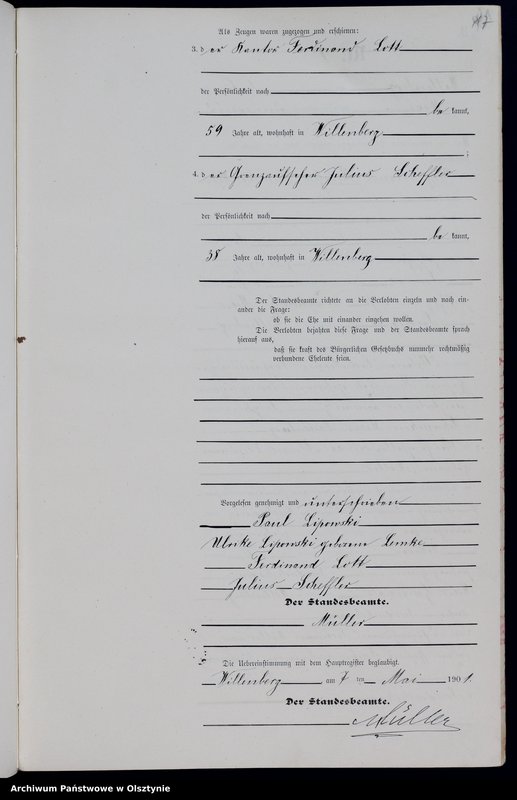 Als Zeugen waren zugezogen und erschienen:
3. der Kantor Ferdinand Lott
der Persönlichkeit nach
be kannt,
59 Jahre alt, wohnhaft in Willenberg
;
4. der Grenzaufseher Julius Scheffler
der Persönlichkeit nach
be kannt,
38 Jahre alt, wohnhaft in Willenberg
Der Standesbeamte richtete an die Verlobten einzeln und nach ein-
ander die Frage:
ob sie die Ehe mit einander eingehen wollen.
Die Verlobten bejahten diese Frage und der Standesbeamte sprach
hierauf aus,
daß sie kraft des Bürgerlichen Gesetzbuchs nunmehr rechtmäßig
verbundene Eheleute seien.
Vorgelesen genehmigt und unterschrieben
Paul Lipowski
Ulrike Lipowski geborene Lemke
Ferdinand Lott
Julius Scheffler
Der Standesbeamte.
Müller
Die Uebereinstimmung mit dem Hauptregister beglaubigt.
Willenberg am 7 ten Mai 1901.
Der Standesbeamte.
Müller
Archiwum Państwowe w Olsztynie